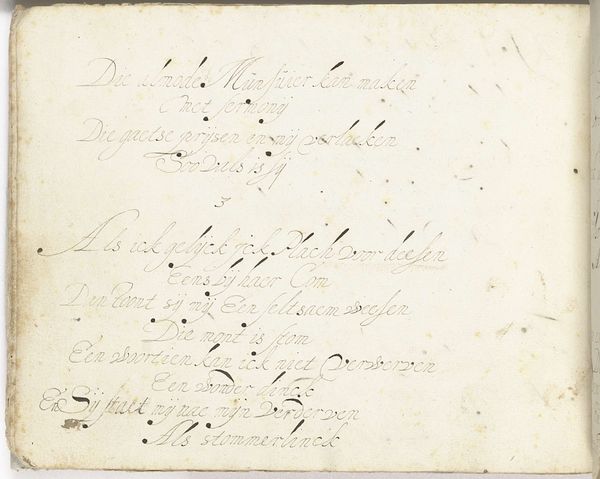 Die almode Munsuier kan maken
met sermonij
Die gaetse prijsen en mij verlaeken
Soo vals is sij
3
Als ick gelijck jck Plach voor deesen
Eens bij haer Com
Dan toont sij mij Een seltsaem weesen
Die mont is stom
Een woort een kan ick niet verwerven
Een wonder dinck
En Sij staet mij nae mijn verderven
Als stommerlinck